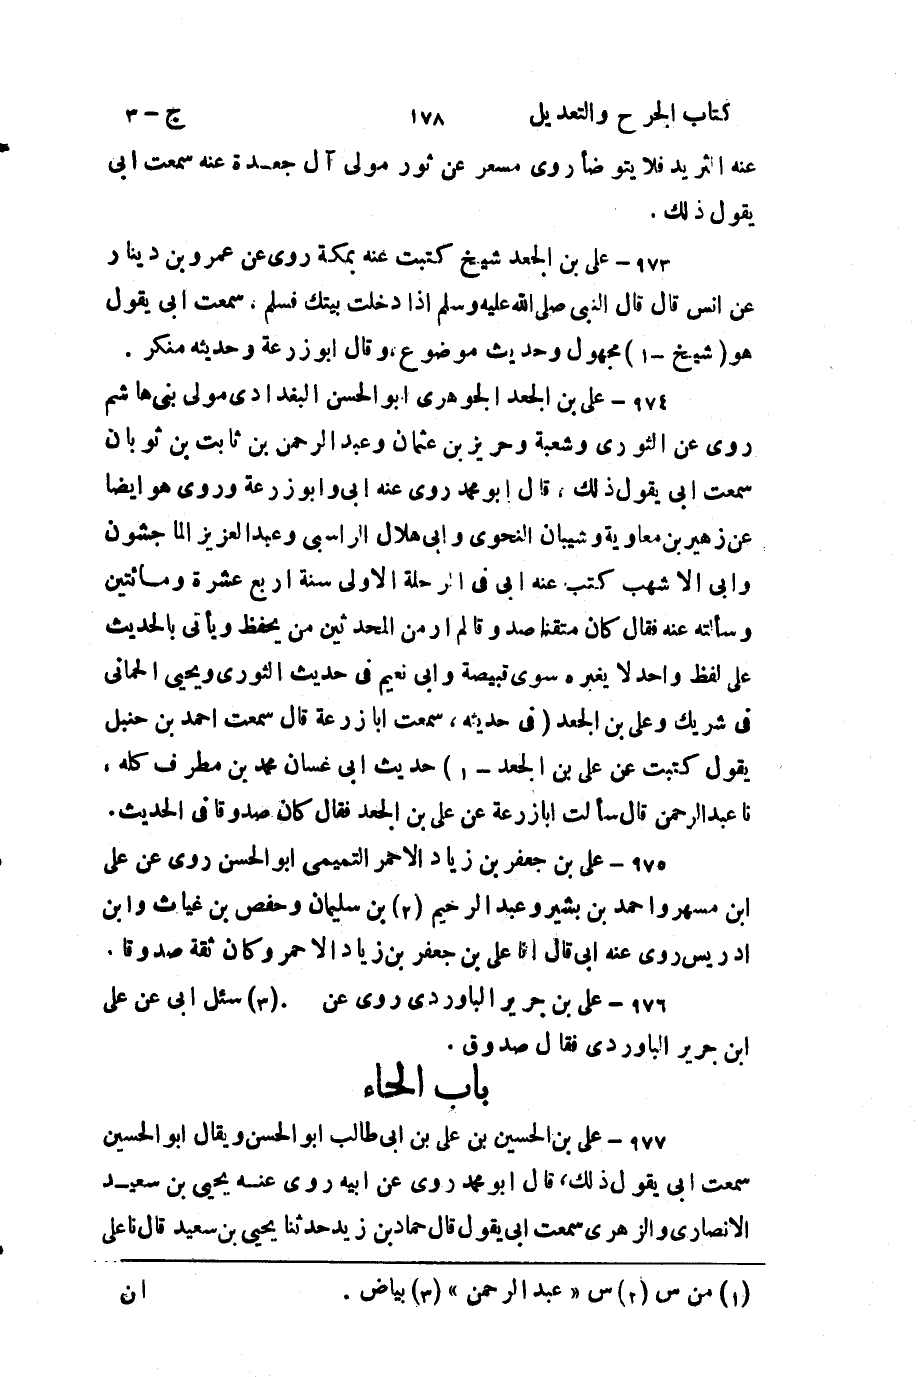 كتاب الجرح والتعديل ١٧٨ ج - ٣
عنه الثريد فلا يتوضأ روى مسعر عن ثور مولى آل جعدة عنه سمعت ابى
يقول ذلك .
٩٧٣ - على بن الجعد شيخ كتبت عنه بمكة روى عن عمرو بن دينار
عن انس قال قال النبى صلى الله عليه وسلم اذا دخلت بيتك فسلم ، سمعت ابى يقول
هو ( شيخ - ١ ) مجهول وحديث موضوع ، وقال ابو زرعة وحديثه منكر .
٩٧٤ - على بن الجعد الجوهرى ابو الحسن البغدادى مولى بنى هاشم
روى عن الثورى وشعبة وحريز بن عثمان وعبد الرحمن بن ثابت بن ثوبان
سمعت ابى يقول ذلك ، قال ابو محمد روى عنه ابى وابو زرعة وروى هو ايضا
عن زهير بن معاوية وشيبان النحوى وابى هلال الراسبى وعبد العزيز الماجشون
وابى الاشهب كتب عنه ابى فى الرحلة الاولى سنة اربع عشرة ومائتين
وسألته عنه فقال كان متقنا صدوقا لم ار من المحدثين من يحفظ ويأتى بالحديث
على لفظ واحد لا يغيره سوى قبيصة وابى نعيم فى حديث الثورى ويحيى الحمانى
فى شريك وعلى بن الجعد ( فى حديثه ، سمعت ابا زرعة قال سمعت احمد بن حنبل
يقول كتبت عن على بن الجعد - ١ ) حديث ابى غسان محمد بن مطرف كله ،
نا عبد الرحمن قال سألت ابا زرعة عن على بن الجعد فقال كان صدوقا فى الحديث .
٩٧٥ - على بن جعفر بن زياد الاحمر التميمى ابو الحسن روى عن على
ابن مسهر واحمد بن بشير وعبد الرحيم (٢) بن سليمان وحفص بن غياث وابن
ادريس روى عنه ابى قال انا على بن جعفر بن زياد الاحمر وكان ثقة صدوقا .
٩٧٦ - على بن جرير الباوردى روى عن .(٣) سئل ابى عن على
ابن جرير الباوردى فقال صدوق .
باب الحاء
٩٧٧ - على بن الحسين بن على بن ابى طالب ابو الحسن ويقال ابو الحسين
سمعت ابى يقول ذلك ، قال ابو محمد روى عن ابيه روى عنه يحيى بن سعيد
الانصارى والزهرى سمعت ابى يقول قال حماد بن زيد حدثنا يحيى بن سعيد قال نا على
(١) من س (٢) س « عبد الرحمن » (٣) بياض . ان